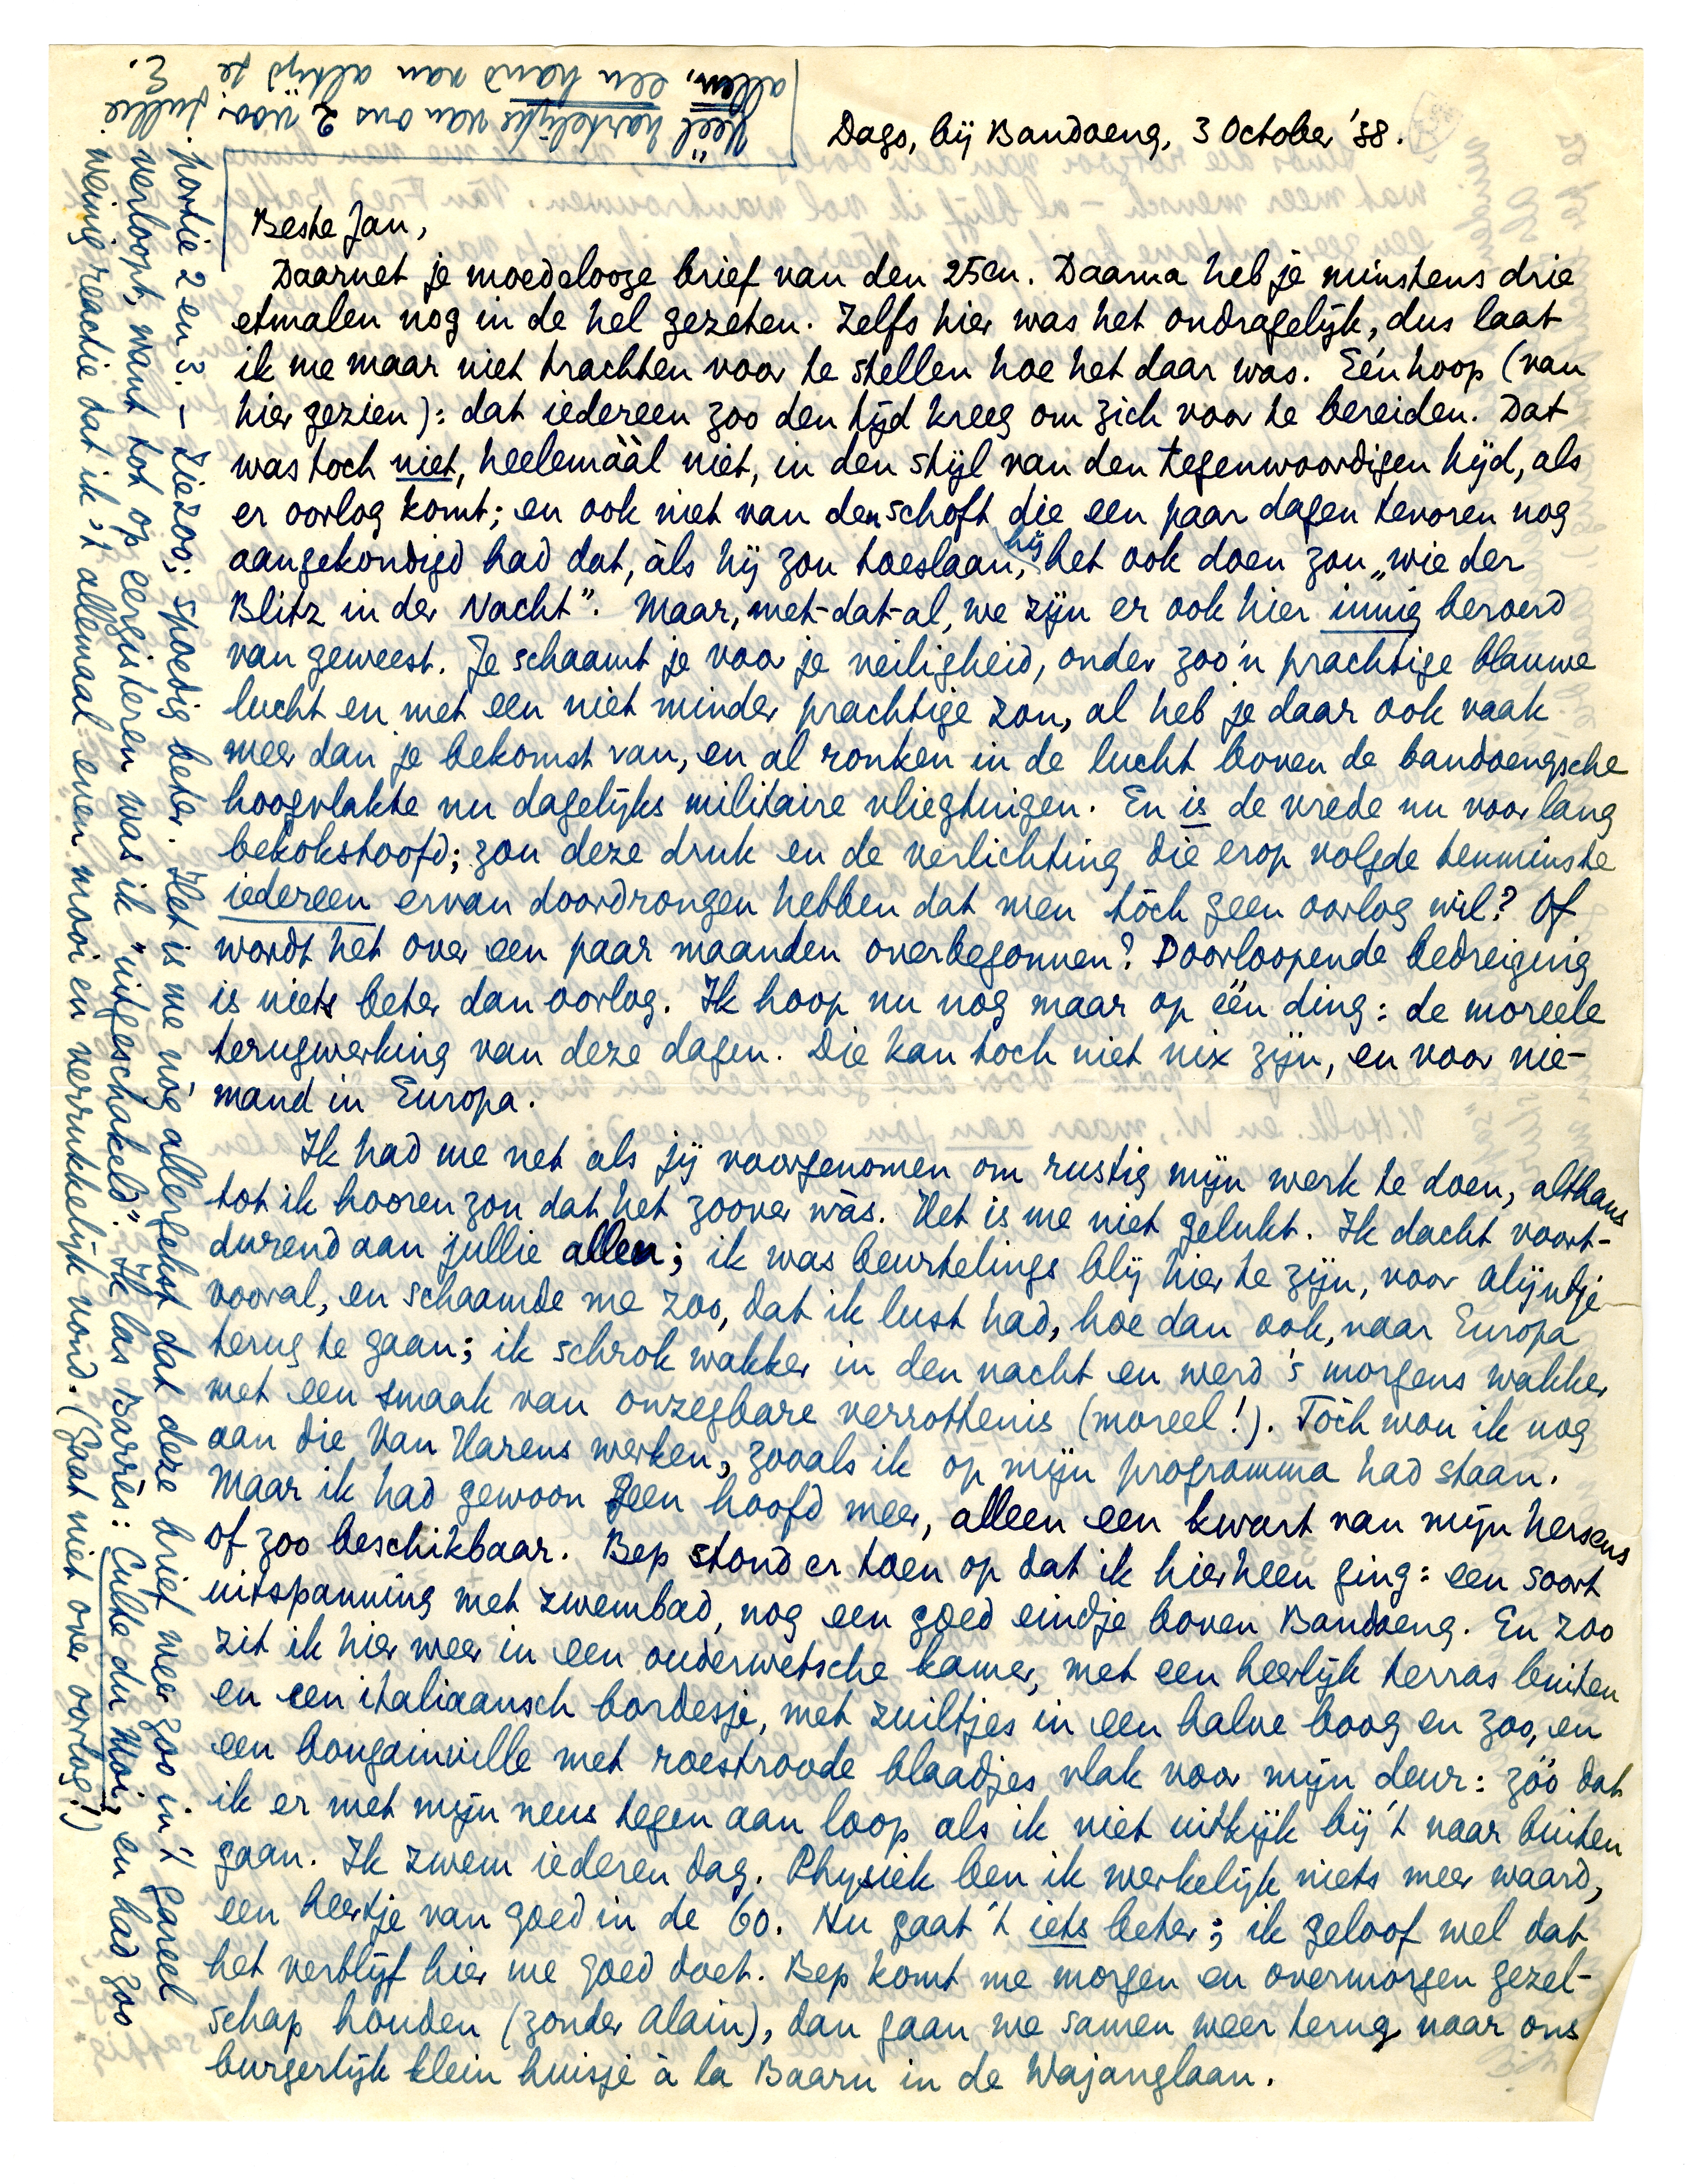 Dago, bij Bandoeng, 3 October '38.
Beste Jan,
Daarnet je moedelooze brief van den 25en. Daarna heb je minstens drie
etmalen nog in de hel gezeten. Zelfs hier was het ondragelijk, dus laat
ik me maar niet trachten voor te stellen hoe het daar was. Eén hoop (van
hier gezien): dat iedereen zoo den tijd kreeg om zich voor te bereiden. Dat
was toch niet, heelemáál niet, in den stijl van den tegenwoordigen tijd, als
er oorlog komt; en ook niet van den schoft die een paar dagen tevoren nog
aangekondigd had dat, àls hij zou toeslaan, hij het ook doen zou „wie der
Blitz in der Nacht". Maar, met-dat-al, we zijn er ook hier innig beroerd
van geweest. Je schaamt je voor je veiligheid, onder zoo'n prachtige blauwe
lucht en met een niet minder prachtige zon, al heb je daar ook vaak
meer dan je bekomst van, en al ronken in de lucht boven de bandoengsche
hoogvlakte nu dagelijks militaire vliegtuigen. En is de vrede nu voor lang
bekokstoofd; zou deze druk en de verlichting die erop volgde tenminste
iedereen ervan doordrongen hebben dat men tòch geen oorlog wil? Of
wordt het over een paar maanden overbegonnen? Doorloopende bedreiging
is niets beter dan oorlog. Ik hoop nu nog maar op één ding: de moreele
terugwerking van deze dagen. Die kan toch niet nix zijn, en voor nie-
mand in Europa.
Ik had me net als jij voorgenomen om rustig mijn werk te doen, althans
tot ik hooren zou dat het zoover wàs. Het is me niet gelukt. Ik dacht voort-
durend aan jullie allen; ik was beurtelings blij hier te zijn, voor Alijntje
vooral, en schaamde me zoo, dat ik lust had, hoe dan ook, naar Europa
terug te gaan; ik schrok wakker in den nacht en werd 's morgens wakker
met een smaak van onzegbare verrottenis (moreel!). Tòch wou ik nog
aan die Van Harens werken, zooals ik op mijn programma had staan.
Maar ik had gewoon geen hoofd meer, alleen een kwart van mijn hersens
of zoo beschikbaar. Bep stond er toen op dat ik hierheen ging: een soort
uitspanning met zwembad, nog een goed eindje boven Bandoeng. En zoo
zit ik hier weer in een ouderwetsche kamer, met een heerlijk terras buiten
en een italiaansch bordesje, met zuiltjes in een halve boog en zoo, en
een bougainville met roestroode blaadjes vlak voor mijn deur: zóó dat
ik er met mijn neus tegen aan loop als ik niet uitkijk bij 't naar buiten
gaan. Ik zwem iederen dag. Physiek ben ik werkelijk niets meer waard,
een heertje van goed in de 60. Nu gaat 't iets beter; ik geloof wel dat
het verblijf hier me goed doet. Bep komt me morgen en overmorgen gezel-
schap houden (zonder Alain), dan gaan we samen weer terug naar ons
burgerlijk klein huisje à la Baarn in de Wajanglaan.
portie 2 en 3. – Ziezoo: spoedig beter. Het is me nòg allergekst dat deze brief weer zoo in 't gareel
verloopt, want tot op eergisteren was ik „uitgeschakeld". Ik las Barrès: Culte du Moi, en had zoo
weinig reactie dat ik 't allemaal even mooi en verrukkelijk vond. (Gaat niet over oorlog!)
Véél hartelijks van ons 2 vóór jullie
allen, een hand van altijd je
E.